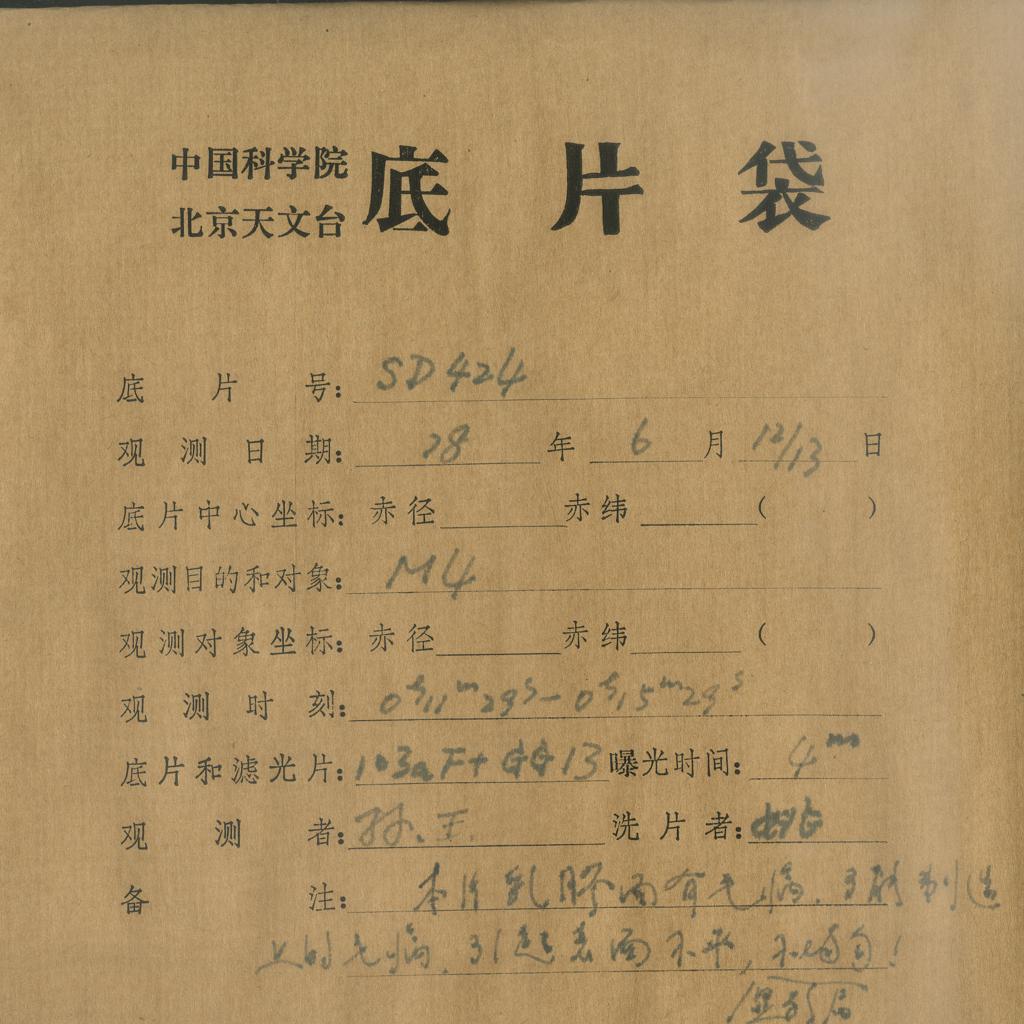 中国科学院
北京天文台
底片袋
底片号: SD424
观测日期: 78年6月12/13日
底片中心坐标: 赤径 赤纬 ( )
观测目的和对象: M4
观测对象坐标: 赤径 赤纬 ( )
观测时刻: 0h11m29s—0h15m29s
底片和滤光片: 103aF+GG13 曝光时间: 4m
观测者: 孙.王. 洗片者:
备注: 本片乳胶面有毛病. 制造
上的毛病, 引起表面不平, 不均匀!
显影后